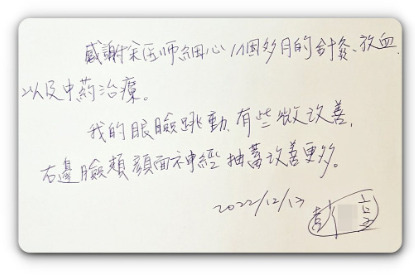 感謝宋医师細心1個多月的針灸、放血
以及中葯治療。
我的眼瞼跳動,有些微改善,
右邊臉頰顏面神經抽蓄改善更多。
2022/12/13
彭